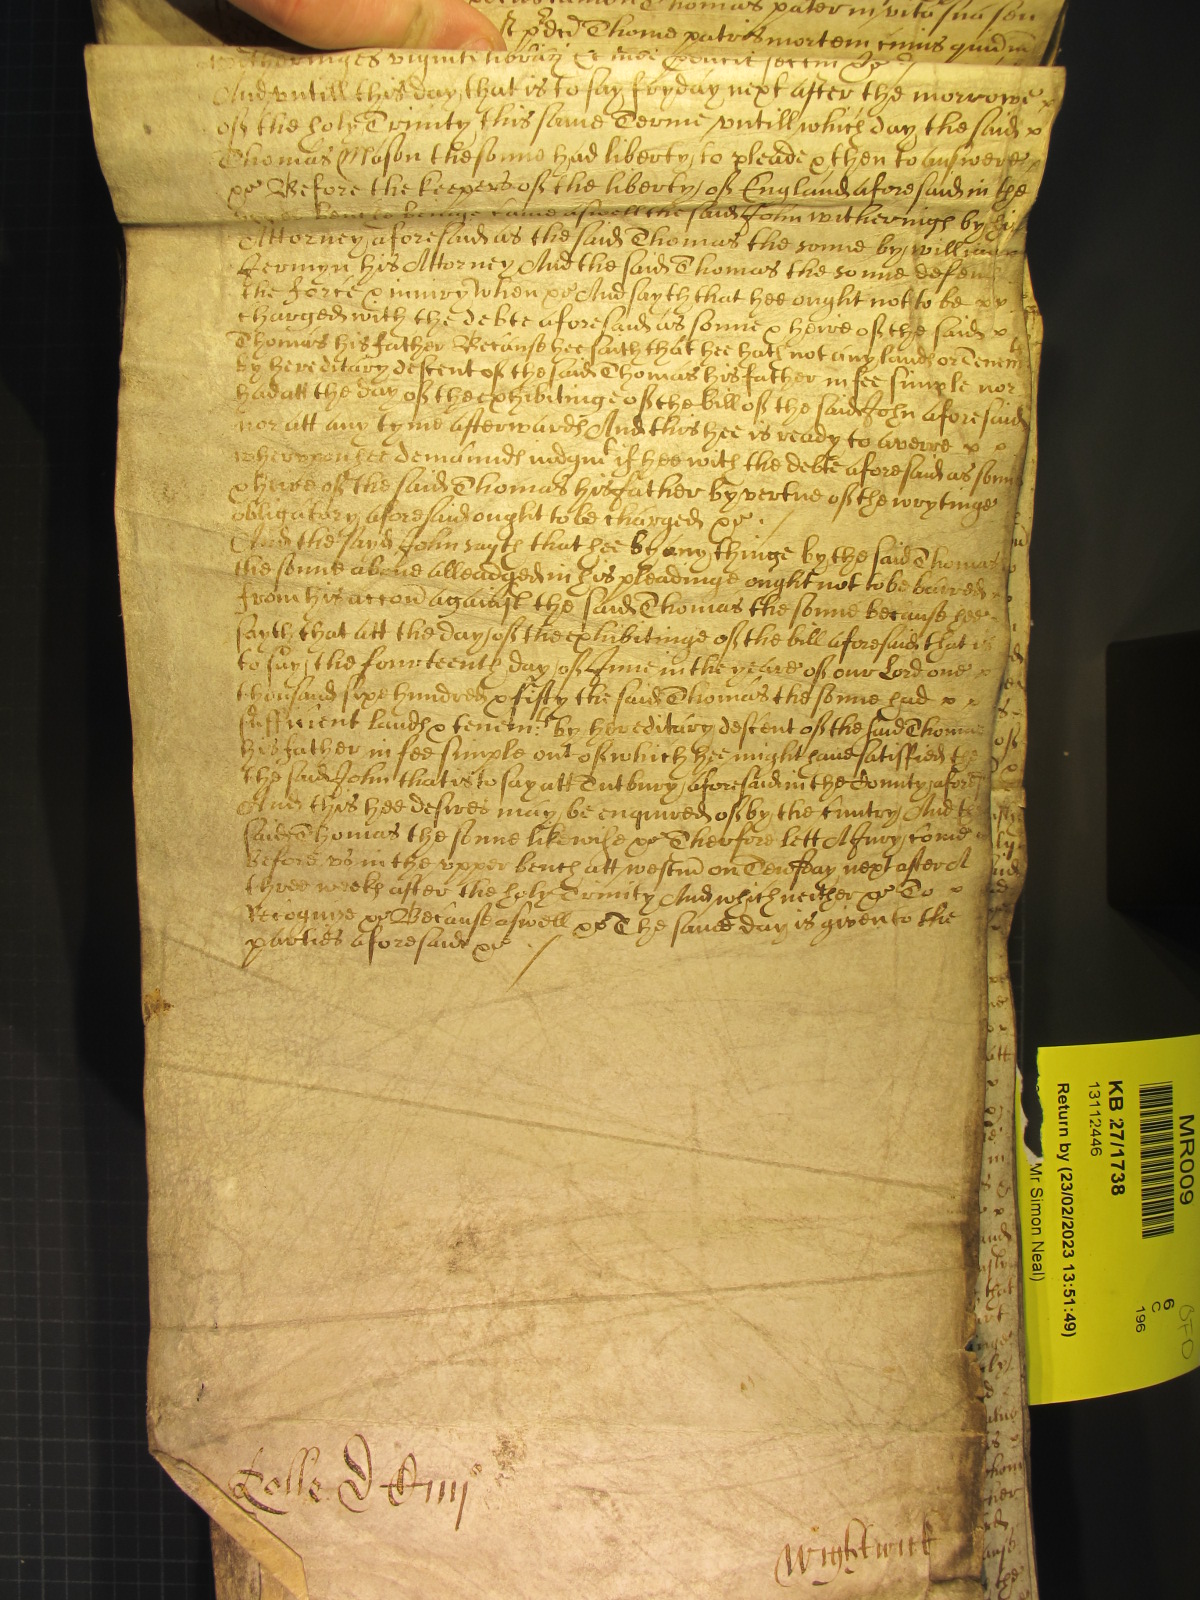 Thomas pater in vita sua seu
Thome patris mortem eius quidem
And untill this day, that is to say fryday next after the morrowe x
of the holy Trinity this same Terme untill which day the said x
Thomas Mason the sonne had liberty, to pleade & then to answere x
&c Before the keepers of the liberty, of England aforesaid in the
came aswell the said John witherings by his
Attorney, aforesaid as the said Thomas the sonne by, william
Jermyn his Attorney And the said Thomas the sonne defend
the force & iniury when &c And sayth that hee ought not to be x x
charged with the debte aforesaid as sonne & heire of the said x
Thomas his father Because hee saith that hee hath not any lands or Tenem
by hereditary descent of the said Thomas his father in fee simple nor
had att the day of the exhibitinge of the bill of the said John aforesaid
nor att any tyme afterwards And this hee is ready to averre x x
whereupon hee demaunds iudgmt if hee with the debte aforesaid as sonne
& heire of the said Thomas his father by vertue of the wrytinge
obligatory, aforesaid ought to be charged &c.
And the sayd John sayth that hee by any thinge by the said Thomas
the sonne above alleadged in his pleadinge ought not to be barred x
from his accon against the said Thomas the sonne because hee
sayth that att the day, of the exhibitinge of the bill aforesaid that is
to say, the fourteenth day, of June in the yeare of our Lord one x
thousand sixe hundred & fifty the said Thomas the sonne had x x
sufficient lands & tenemts by hereditary descent of the said Thomas
his father in fee simple out of which hee might have satisfied the
the said John that is to say att Tutbury, aforesaid in the County, afores
And this hee desires may, be enquired of by, the Cuntry, And the
said Thomas the sonne likewise &c Therfore lett A Jury, come
before us in the upper bench att westm on Teusday next after
three weeks after the holy Trinity And which neither &c To x
Recognize &c Because aswell &c The same day is given to the
parties aforesaid &c
Wightwick
MR009
KB 27/1738
13112446
6
C
196
Return by (23/02/2023 13:51:49)
Mr Simon Neal)